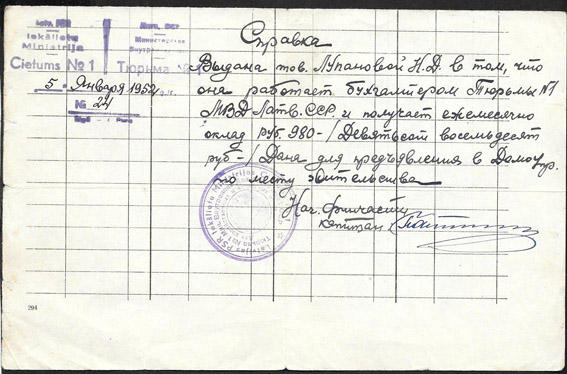 Latv. PSR
Iekšlietu
Ministrija
Cietums № 1
Латв. ССР
Министерство
Внутренних
Тюрьма №
5. Января 1952 g./г.
№ 24
Справка
Выдана тов. Лупановой Н.Д. в том, что
она работает бухгалтером Тюрьмы №1
МВД Латв. ССР. и получает ежемесячно
оклад руб 980-/Девятьсот восемьдесят
руб-/ Дана для предъявления в Домоупр.
по месту жительства
Нач. финчасти
капитан
Latvijas PSR Iekšlietu Ministrijas
294